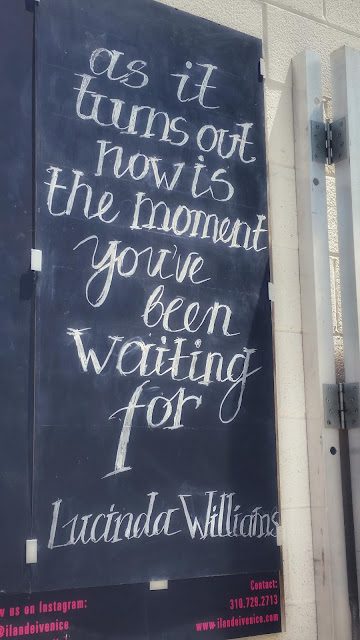 as it
turns out
now is
the moment
you've
been
waiting
for
Lucinda Williams
w us on Instagram:
@ilandeivenice
Contact:
310.729.2713
www.ilandeivenice.com